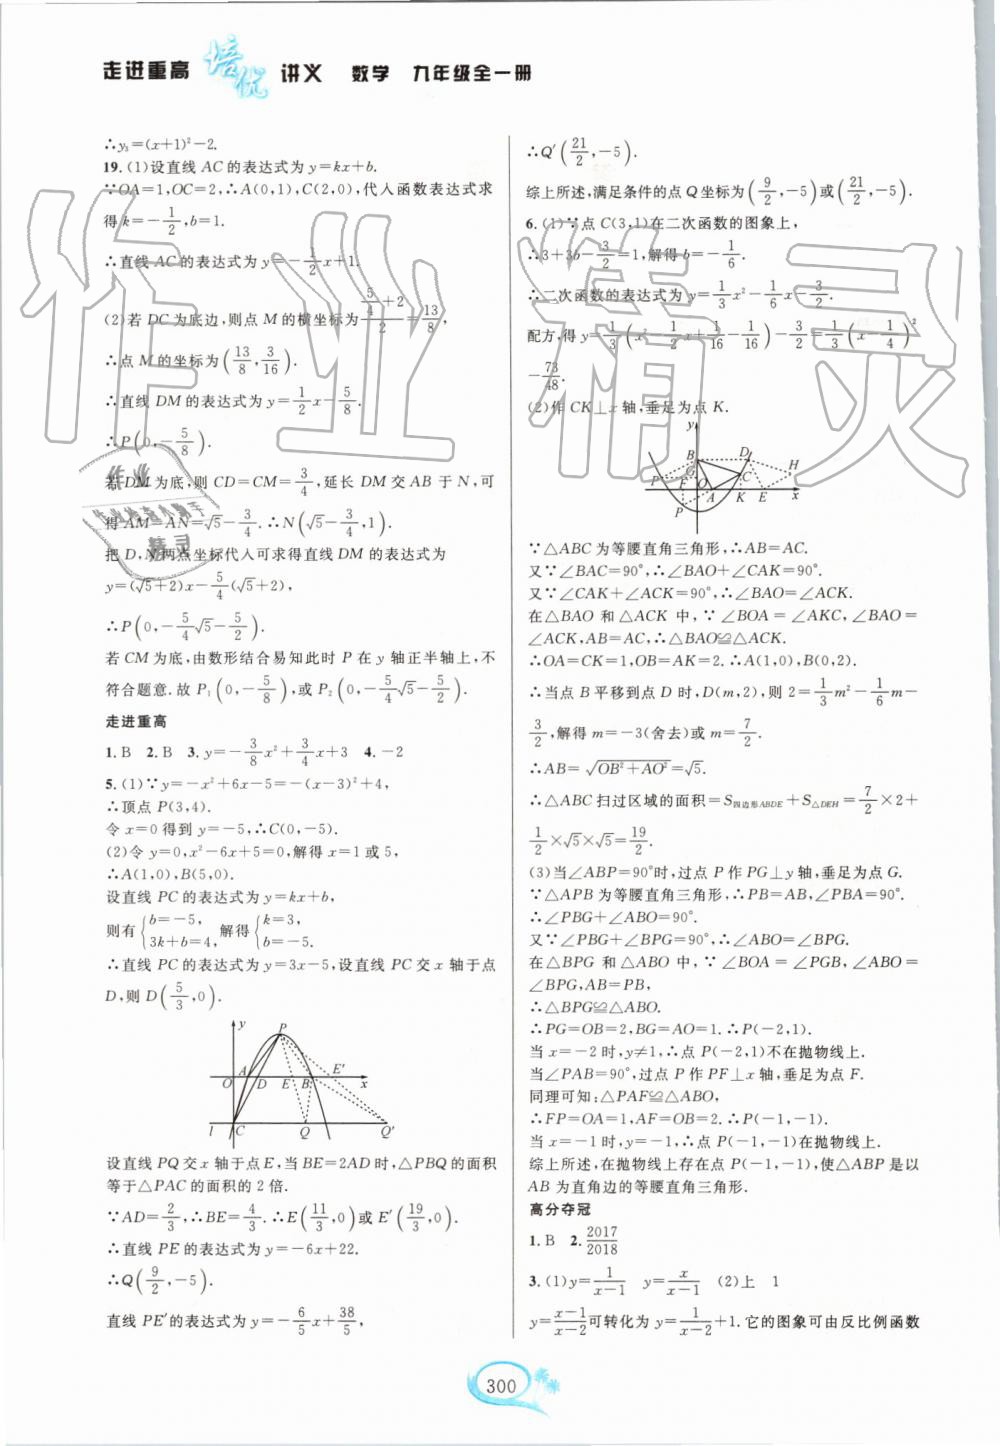 走进重高 培优 讲义 数学 九年级全一册
∴y₃=(x+1)²-2.
19. (1)设直线 AC 的表达式为 y=kx+b.
∵OA=1,OC=2,∴A(0,1),C(2,0),代入函数表达式求
得 k=-1/2,b=1.
∴直线 AC 的表达式为 y=-1/2x+1.
(2)若 DC 为底边,则点 M 的横坐标为 (5/4+2)/2=13/8,
∴点 M 的坐标为(13/8,3/16).
∴直线 DM 的表达式为 y=1/2x-5/8.
∴P(0,-5/8).
若 DM 为底,则 CD=CM=3/4,延长 DM 交 AB 于 N,可
得 AM=AN=√5-3/4.∴N(√5-3/4,1).
把 D,N 两点坐标代入可求得直线 DM 的表达式为
y=(√5+2)x-5/4(√5+2),
∴P(0,-5/4√5-5/2).
若 CM 为底,由数形结合易知此时 P 在 y 轴正半轴上,不
符合题意.故 P₁(0,-5/8),或 P₂(0,-5/4√5-5/2).
走进重高
1. B 2. B 3. y=-3/8x²+3/4x+3 4. -2
5. (1)∵y=-x²+6x-5=-(x-3)²+4,
∴顶点 P(3,4).
令 x=0 得到 y=-5,∴C(0,-5).
(2)令 y=0,x²-6x+5=0,解得 x=1 或 5,
∴A(1,0),B(5,0).
设直线 PC 的表达式为 y=kx+b,
则有{b=-5, 3k+b=4, 解得{k=3, b=-5.
∴直线 PC 的表达式为 y=3x-5,设直线 PC 交 x 轴于点
D,则 D(5/3,0).
y P
O A D E B E′ x
l C Q Q′
设直线 PQ 交 x 轴于点 E,当 BE=2AD 时,△PBQ 的面积
等于△PAC 的面积的 2 倍.
∵AD=2/3,∴BE=4/3.∴E(11/3,0)或 E′(19/3,0).
∴直线 PE 的表达式为 y=-6x+22.
∴Q(9/2,-5).
直线 PE′的表达式为 y=-6/5x+38/5,
∴Q′(21/2,-5).
综上所述,满足条件的点 Q 坐标为(9/2,-5)或(21/2,-5).
6. (1)∵点 C(3,1)在二次函数的图象上,
∴3+3b-3/2=1,解得 b=-1/6.
∴二次函数的表达式为 y=1/3x²-1/6x-3/2.
配方,得 y=1/3(x²-1/2x+1/16-1/16)-3/2=1/3(x-1/4)²
-73/48.
(2)作 CK⊥x 轴,垂足为点 K.
y
B D
G C H
P F O A K E x
P
∵△ABC 为等腰直角三角形,∴AB=AC.
又∵∠BAC=90°,∴∠BAO+∠CAK=90°.
又∵∠CAK+∠ACK=90°,∴∠BAO=∠ACK.
在△BAO 和△ACK 中,∵∠BOA=∠AKC,∠BAO=
∠ACK,AB=AC,∴△BAO≌△ACK.
∴OA=CK=1,OB=AK=2.∴A(1,0),B(0,2).
∴当点 B 平移到点 D 时,D(m,2),则 2=1/3m²-1/6m-
3/2,解得 m=-3(舍去)或 m=7/2.
∴AB=√(OB²+AO²)=√5.
∴△ABC 扫过区域的面积=S四边形ABDE+S△DEH=7/2×2+
1/2×√5×√5=19/2.
(3)当∠ABP=90°时,过点 P 作 PG⊥y 轴,垂足为点 G.
∵△APB 为等腰直角三角形,∴PB=AB,∠PBA=90°.
∴∠PBG+∠ABO=90°.
又∵∠PBG+∠BPG=90°,∴∠ABO=∠BPG.
在△BPG 和△ABO 中,∵∠BOA=∠PGB,∠ABO=
∠BPG,AB=PB,
∴△BPG≌△ABO.
∴PG=OB=2,BG=AO=1.∴P(-2,1).
当 x=-2 时,y≠1,∴点 P(-2,1)不在抛物线上.
当∠PAB=90°,过点 P 作 PF⊥x 轴,垂足为点 F.
同理可知:△PAF≌△ABO,
∴FP=OA=1,AF=OB=2.∴P(-1,-1).
当 x=-1 时,y=-1,∴点 P(-1,-1)在抛物线上.
综上所述,在抛物线上存在点 P(-1,-1),使△ABP 是以
AB 为直角边的等腰直角三角形.
高分夺冠
1. B 2. 2017/2018
3. (1)y=1/(x-1) y=x/(x-1) (2)上 1
y=(x-1)/(x-2)可转化为 y=1/(x-2)+1.它的图象可由反比例函数
300
作业精灵